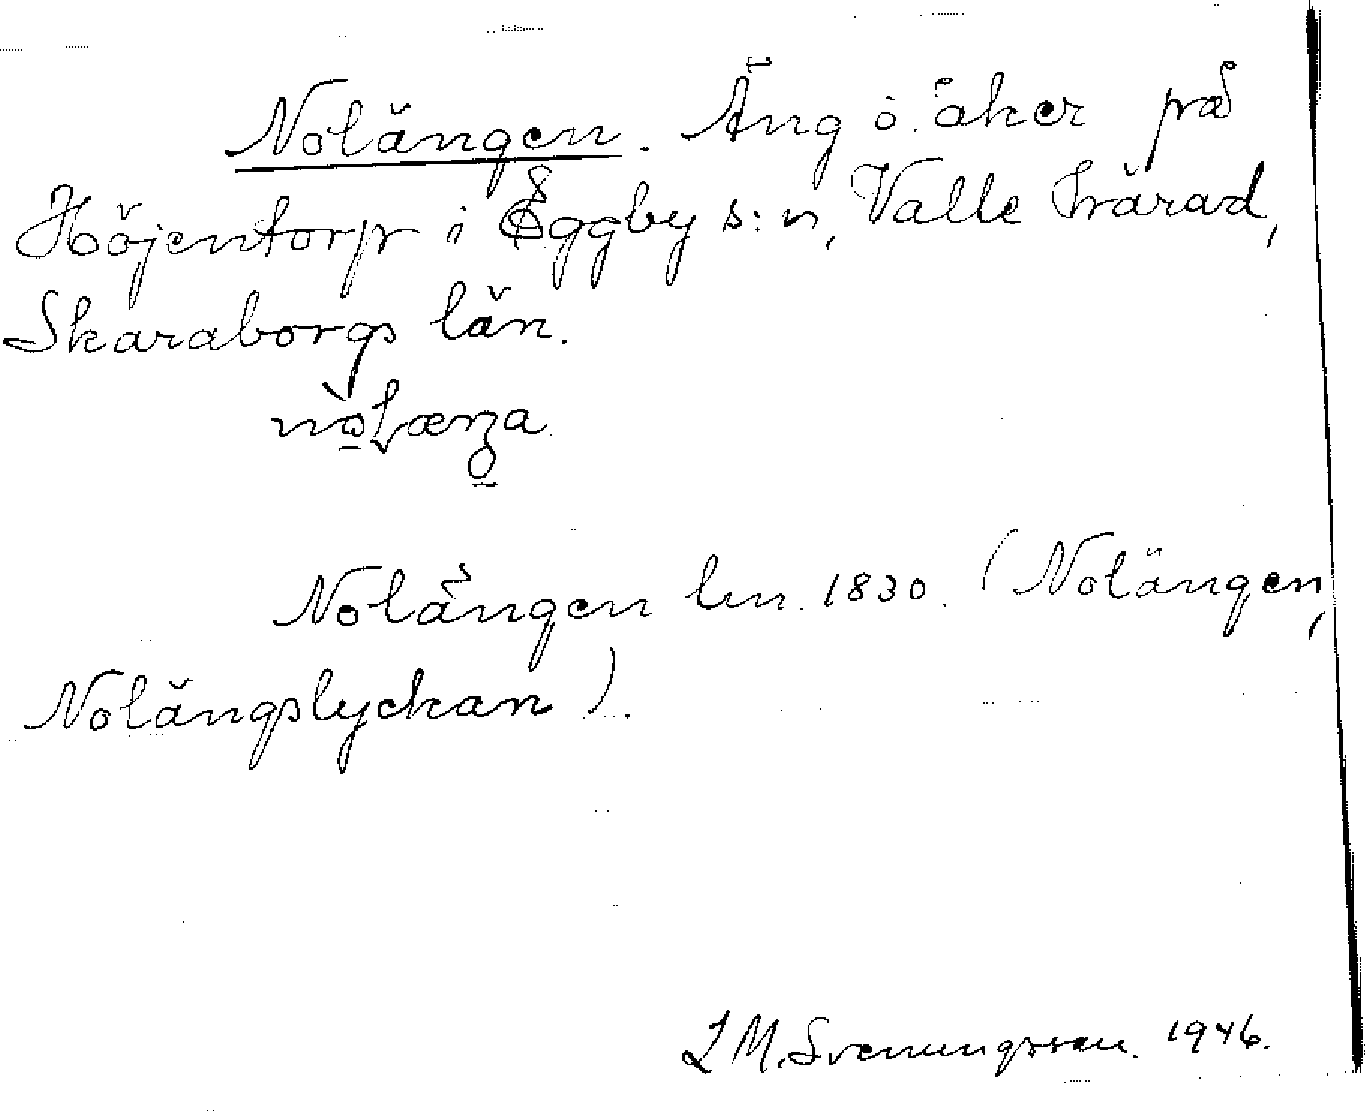 Nolängen. Äng o. åker på
Höjentorp i Eggby s:n, Valle härad,
Skaraborgs län.
Nolängen lm. 1830. (Nolängen,
Nolängslyckan).
L M. Svenungsson. 1946.